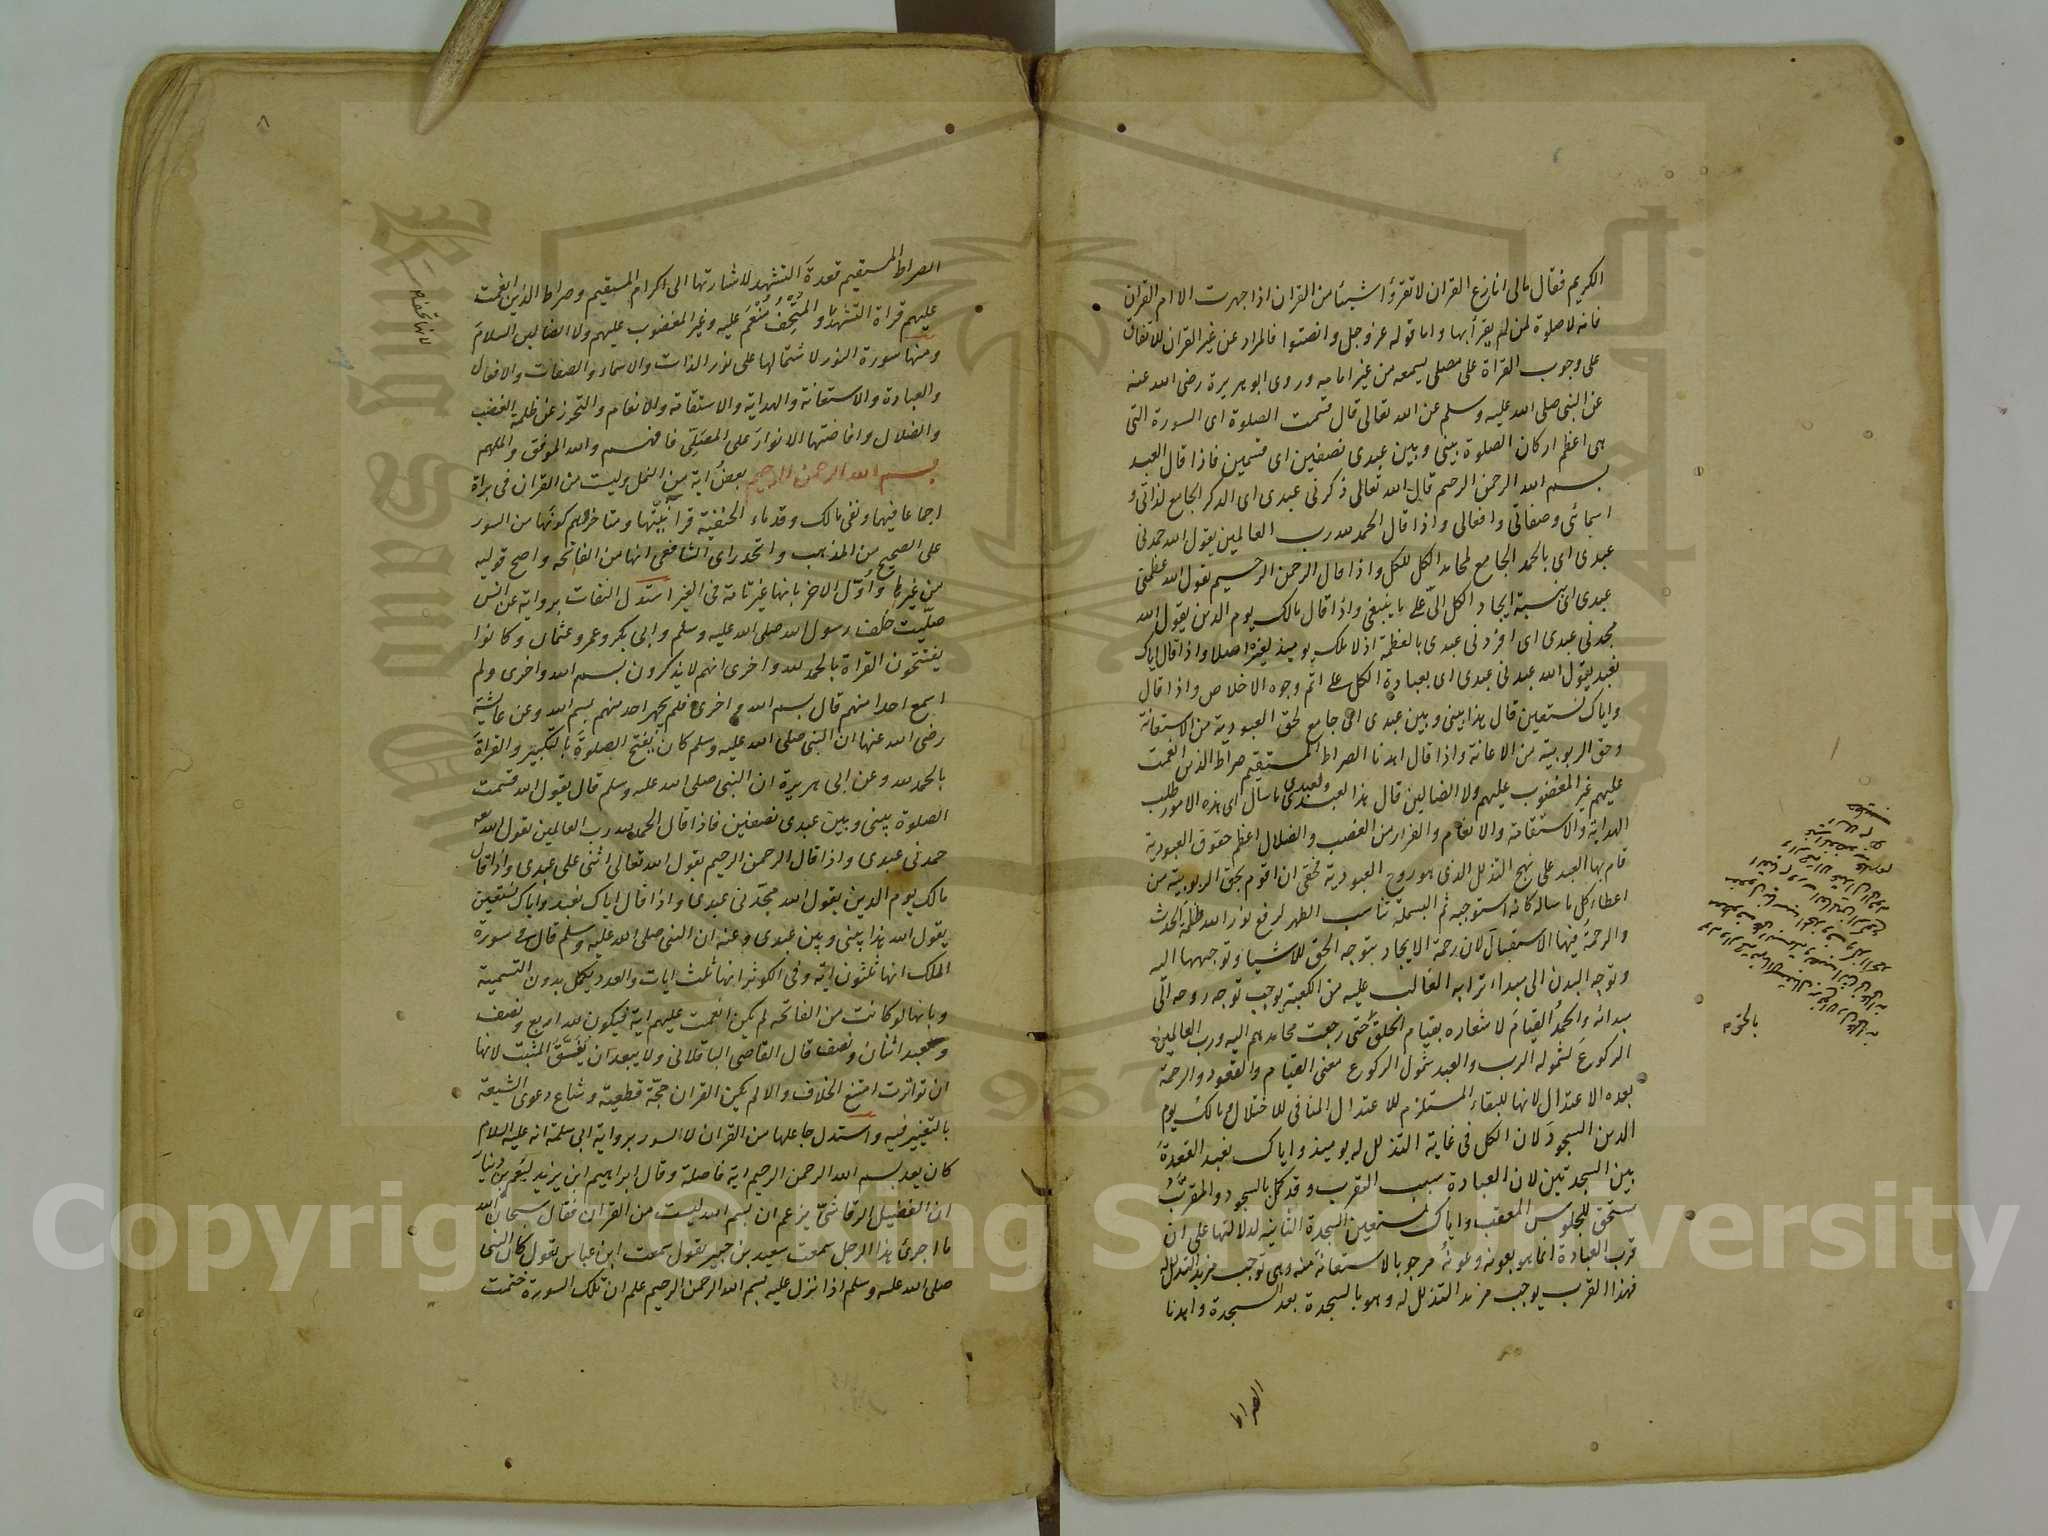 الكريم فقال مالى انازع القران لا تقرؤا شيئا من القران اذا جهرت الا ام القران
فانه لا صلوة لمن لم يقرأ بها واما قوله عز وجل وانصتوا فالمراد عن غير القران للاتفاق
على وجوب القراة على مصلى يسمعه من غير امامه وروى ابو هريرة رضى الله عنه
عن النبى صلى الله عليه وسلم عن الله تعالى قال قسمت الصلوة اى السورة التى
هى اعظم اركان الصلوة بينى وبين عبدى نصفين اى قسمين فاذا قال العبد
بسم الله الرحمن الرحيم قال الله تعالى ذكرنى عبدى اى الذكر الجامع لذاتى و
اسمائى وصفاتى وافعالى واذا قال الحمد لله رب العالمين يقول الله حمدنى
عبدى اى بالحمد الجامع لمحامد الكل للكل واذا قال الرحمن الرحيم يقول الله عظمنى
عبدى اى نسبة ايجاد الكل الىّ على ما ينبغى واذا قال مالك يوم الدين يقول الله
مجدنى عبدى اى افردنى عبدى بالعظمة اذ لا ملك يوميذ لغيره اصلا واذا قال اياك
نعبد يقول الله عبدنى عبدى اى بعبادة الكل على اتم وجوه الاخلاص واذا قال
واياك نستعين قال هذا بينى وبين عبدى اى جامع لحق العبودية من الاستعانة
وحق الربوبية من الاعانة واذا قال اهدنا الصراط المستقيم صراط الذين انعمت
عليهم غير المغضوب عليهم ولا الضالين قال هذا لعبدى ولعبدى ما سال اى هذه الامور طلب
الهداية والاستقامة والانعام والفرار من الغضب والضلال اعظم حقوق العبودية
قام بها العبد على نهج التذلل الذى هو روح العبودية فحق ان اقوم بحق الربوبية من
اعطاء كل ما ساله كانه استوجبه ثم البسملة تناسب الطهر لرفع نور الله ظلمة الحدث
والرحمة فيها الاستقبال لان رحمة الايجاد بتوجه الحق للاشيا وتوجهها اليه
وتوجه البدن الى مبداء ترابه الغالب عليه من الكعبة يوجب توجه روحه الى
مبدائه والحمد القيام لاشعاره بقيام الخلق حتى رجعت محامدهم اليه ورب العالمين
الركوع لشموله الرب والعبد شمول الركوع معنى القيام والقعود والرحمة
بعده الاعتدال لانها للبقاء المستلزم للاعتدال المنافى للاختلال ومالك يوم
الدين السجود لان الكل فى غاية التذلل له يوميذ واياك نعبد القعدة
بين السجدتين لان العبادة سبب التقرب وقد كمل بالسجود والمقرب
ستحق للجلوس المعقب واياك نستعين السجدة الثانية لدلالتها على ان
قرب العبادة انما هو بعونه وعونه مرجو بالاستعانة منه وهى توجب مزيد التذلل له
فهذا القرب يوجب مزيد التذلل له وهو بالسجدة بعد السجدة واهدنا
الصراط
الصراط المستقيم قعدة التشهد لاشارتها الى اكرام المستقيم وصراط الذين انعمت
عليهم قراة التشهد والمتحف منعم عليه وغير المغضوب عليهم ولا الضالين السلام
ومنها سورة النور لاشتمالها على نور الذات والاسماء والصفات والافعال
والعبادة والاستعانة والهداية والاستقامة والانعام والتحرز عن ظلمة الغضب
والضلال وافاضتها الانوار على المصلى فافهم والله الموفق والملهم
بسم الله الرحمن الرحيم بعض اية من النمل وليست من القران فى براة
اجماعا فيهما ونفى مالك وقدماء الحنفية قرانيتها ومتاخروهم كونها من السور
على الصحيح من المذهب واتحد راى الشافعى انها من الفاتحة واصح قوليه
من غيرها واوّل الاخر بانها غير تامة فى الغير استدل النفات برواية عن انس
صليت خلف رسول الله صلى الله عليه وسلم وابى بكر وعمر وعثمان وكانوا
يفتتحون القراة بالحمد لله واخرى انهم لا يذكرون بسم الله واخرى ولم
اسمع احدا منهم قال بسم الله واخرى فلم يجهر احد منهم بسم الله وعن عائشة
رضى الله عنها ان النبى صلى الله عليه وسلم كان يفتح الصلوة بالتكبير والقراة
بالحمد لله وعن ابى هريرة ان النبى صلى الله عليه وسلم قال يقول الله قسمت
الصلوة بينى وبين عبدى نصفين فاذا قال الحمد لله رب العالمين يقول الله تعه
حمدنى عبدى واذا قال الرحمن الرحيم يقول الله تعالى اثنى على عبدى واذا قال
مالك يوم الدين يقول الله مجدنى عبدى واذا قال اياك نعبد واياك نستعين
يقول الله هذا بينى وبين عبدى وعنه ان النبى صلى الله عليه وسلم قال فى سورة
الملك انها ثلثون اية وفى الكوثر انها ثلث ايات والعدد يكمل بدون التسمية
وبانها لو كانت من الفاتحة لم يكن انعمت عليهم اية فيكون لله اربع ونصف
وللعبد اثنان ونصف قال القاضى الباقلانى ولا يبعد ان يفسق المثبت لانها
ان تواترت امتنع الخلاف والا لم يكن القران حجة قطعية وشاع دعوى الشيعة
بالتغيير فيه واستدل جاعلها من القران لا السور برواية ابى سلمة انه عليه السلام
كان يعد بسم الله الرحمن الرحيم اية فاصلة وقال ابراهيم ابن يزيد لعمرو بن دينار
ان الفضيل الرقاشى يزعم ان بسم الله ليست من القران فقال سبحان الله
ما اجرئ هذا الرجل سمعت سعيد بن جبير يقول سمعت ابن عباس يقول كان النبى
صلى الله عليه وسلم اذا نزل عليه بسم الله الرحمن الرحيم علم ان تلك السورة ختمت
٨
Copyright © King Saud University
1957